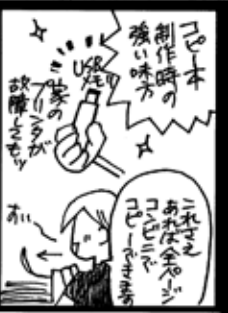 コピー本
制作時の
強い味方
USB
メモリ
家の
プリンタが
故障しても!!
これさえ
あれば全ページ
コンビニで
コピーできます
すぃ